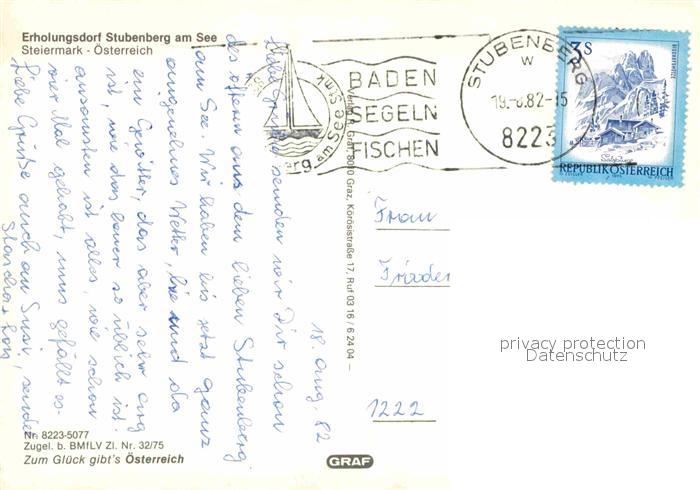 Erholungsdorf Stubenberg am See
Steiermark - Österreich
BADEN
SEGELN
FISCHEN
am See
STUBENBERG
W
19.-8.82-15
8223
3 S
REPUBLIK ÖSTERREICH
Graf, 8010 Graz, Körösistraße 17, Ruf 03 16 / 6 24 04 –
18. Aug. 82
Liebe senden wir Dir schon
des öftern aus dem lieben Stubenberg
am See. Wir haben bis jetzt ganz
angenehmes Wetter, hie und da
ein Gewitter, das aber sehr arg
ist, wie das heuer so üblich ist.
ansonsten ist alles, wie schon
vier Mal gehabt, uns gefällt es.
Liebe Grüße auch an Susi, senden
Frau
1222
privacy protection
Datenschutz
Nr. 8223-5077
Zugel. b. BMfLV Zl. Nr. 32/75
Zum Glück gibt's Österreich
GRAF